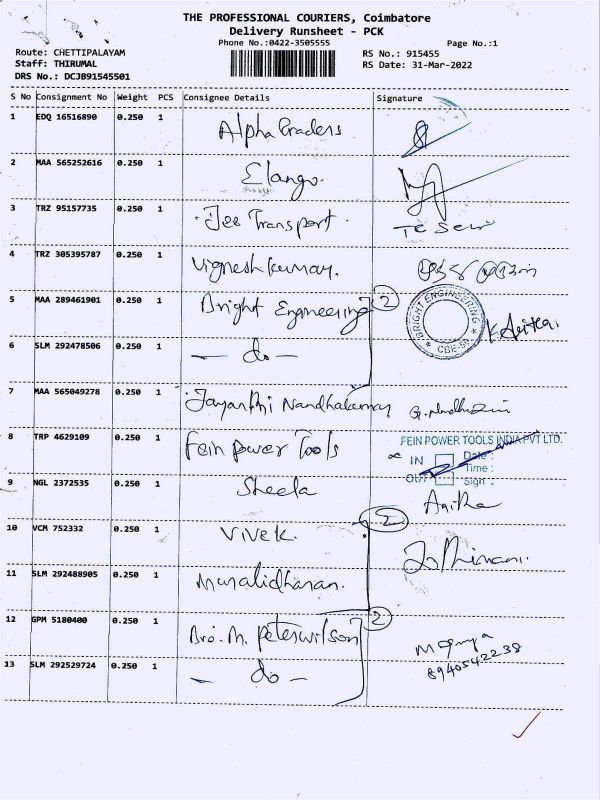 THE PROFESSIONAL COURIERS, Coimbatore
Delivery Runsheet - PCK
Phone No.:0422-3505555
Page No.:1
Route: CHETTIPALAYAM
RS No.: 915455
Staff: THIRUMAL
RS Date: 31-Mar-2022
DRS No.: DCJB91545501
S No Consignment No Weight PCS Consignee Details Signature
1 EDQ 16516890 0.250 1 Alpha Traders
2 MAA 565252616 0.250 1 Elango.
3 TRZ 95157735 0.250 1 Jee Transport.
4 TRZ 305395787 0.250 1 Vigneshkumar.
5 MAA 289461901 0.250 1 Bright Engineering 2
BRIGHT ENGINEERING
CBE-50
6 SLM 292478506 0.250 1 — do —
7 MAA 565049278 0.250 1 Jayanthi Nandhakumar
8 TRP 4629109 0.250 1 Fein Power Tools
FEIN POWER TOOLS INDIA PVT LTD.
IN Date :
Time :
OUT Sign :
9 NGL 2372535 0.250 1 Sheela
10 VCM 752332 0.250 1 Vivek. 2
11 SLM 292488905 0.250 1 Muralidharan.
12 GPM 5180400 0.250 1 Bro. M. Peterwilson 2
8940542238
13 SLM 292529724 0.250 1 — do —